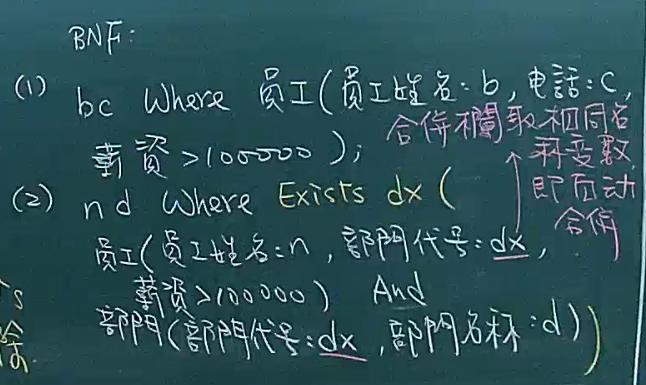 BNF:
(1) bc Where 員工(員工姓名:b, 电話:C,
薪資>100000);
合併欄取相同名
称变数
即自动
合併
(2) nd Where Exists dx (
員工(員工姓名:n, 部門代号:dx,
薪資>100000) And
部門(部門代号:dx, 部門名称:d))